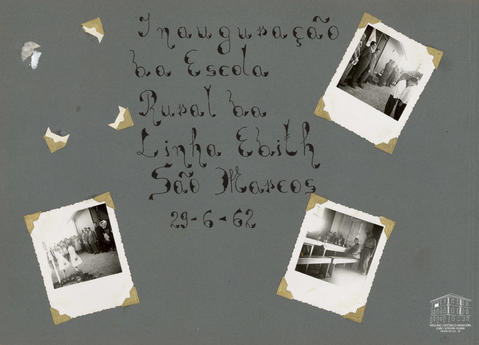 Inauguração
da Escola
Rural da
Linha Edith
São Marcos
29-6-62